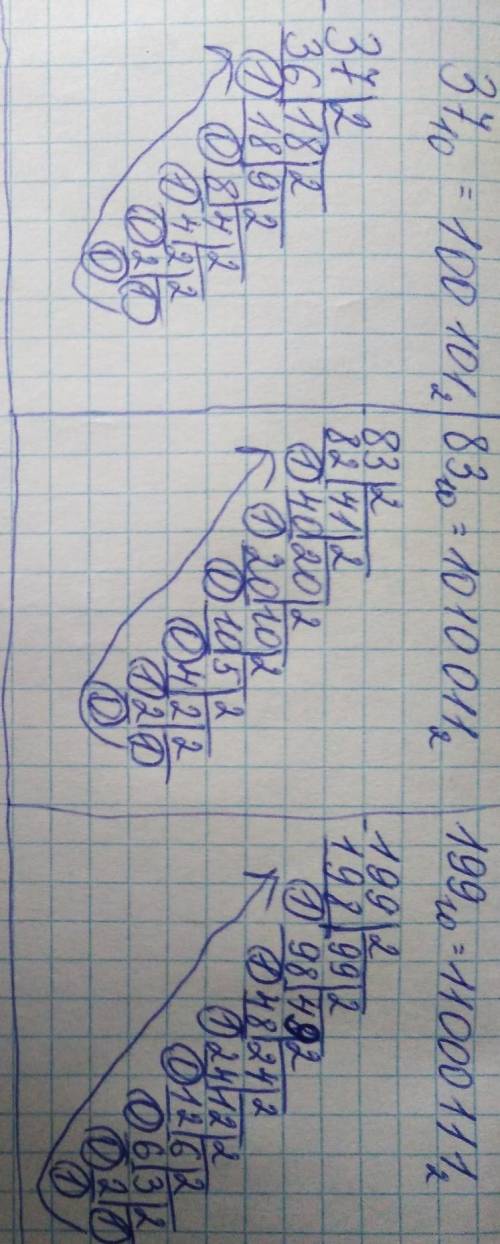 37₁₀ = 100 101₂
37 2
36 18 2
1 18 9 2
0 8 4 2
1 4 2 2
0 2 1
0
83₁₀ = 1010 011₂
83 2
82 41 2
1 40 20 2
1 20 10 2
0 10 5 2
0 4 2 2
1 2 1
0
199₁₀ = 11000111₂
-199 2
198 99 2
1 98 49 2
1 48 24 2
1 24 12 2
0 12 6 2
0 6 3 2
0 2 1
1